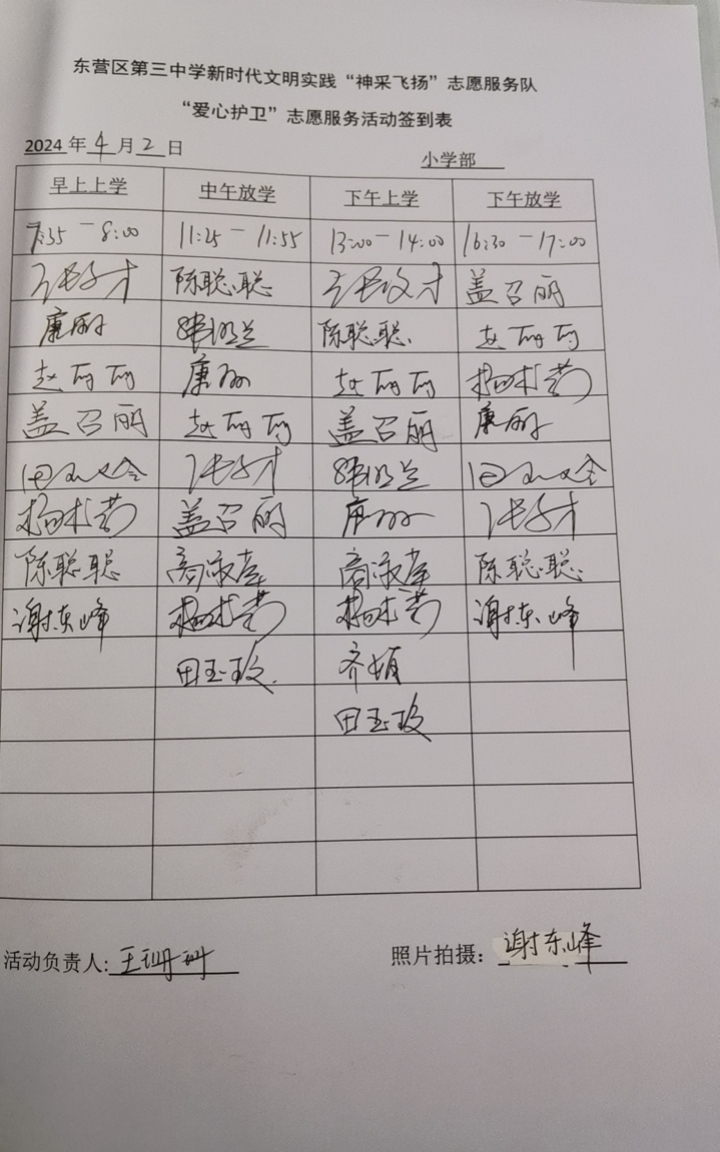 东营区第三中学新时代文明实践“神采飞扬”志愿服务队
“爱心护卫”志愿服务活动签到表
2024年4月2日 小学部
早上上学 中午放学 下午上学 下午放学
7:35－8:00 11:25－11:55 13:00－14:00 16:30－17:00
陈聪聪 盖召丽
康丽 陈聪聪 赵丽丽
赵丽丽 康丽 赵丽丽 杨术芳
盖召丽 赵丽丽 盖召丽 康丽
杨术芳 盖召丽 康丽
陈聪聪 商淑英 商淑英 陈聪聪
谢东峰 杨术芳 杨术芳 谢东峰
田玉玫 齐娟
田玉玫
活动负责人:王珊珊 照片拍摄：谢东峰